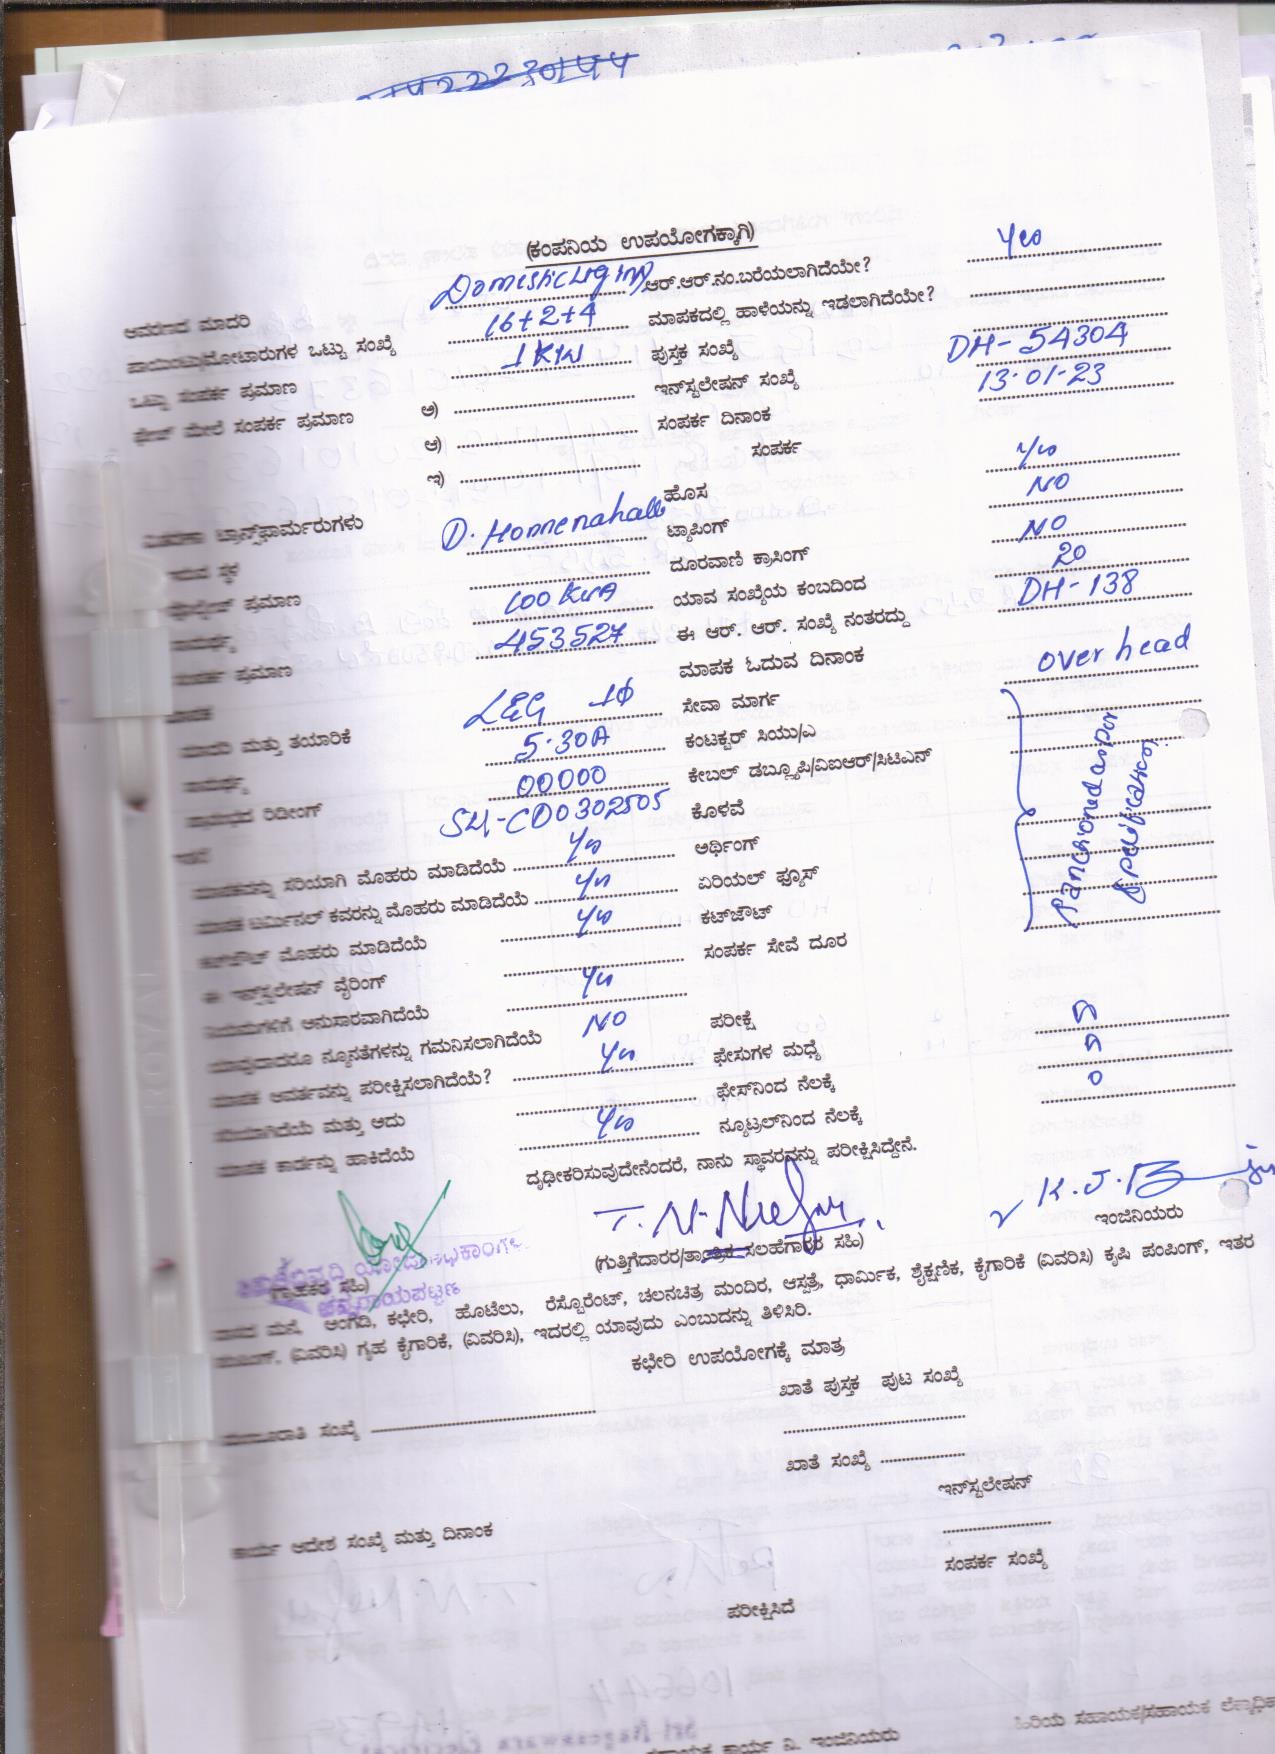 (ಕಂಪನಿಯ ಉಪಯೋಗಕ್ಕಾಗಿ)
ಆವರಣದ ಮಾದರಿ Domestic Lighting ಆರ್.ಆರ್.ನಂ.ಬರೆಯಲಾಗಿದೆಯೇ? Yes
ಪಾಯಿಂಟು/ಮೋಟಾರುಗಳ ಒಟ್ಟು ಸಂಖ್ಯೆ 16+2+4 ಮಾಪಕದಲ್ಲಿ ಹಾಳೆಯನ್ನು ಇಡಲಾಗಿದೆಯೇ?
ಒಟ್ಟು ಸಂಪರ್ಕ ಪ್ರಮಾಣ 1 KW ಪುಸ್ತಕ ಸಂಖ್ಯೆ
ಫೇಸ್ ಮೇಲೆ ಸಂಪರ್ಕ ಪ್ರಮಾಣ ಅ) ಇನ್‌ಸ್ಟಲೇಷನ್ ಸಂಖ್ಯೆ DH-54304
ಆ) ಸಂಪರ್ಕ ದಿನಾಂಕ 13-01-23
ಇ) ಸಂಪರ್ಕ
ವಿತರಣಾ ಟ್ರಾನ್ಸ್‌ಫಾರ್ಮರುಗಳು ಹೊಸ Yes
ಇರುವ ಸ್ಥಳ D. Honnenahalli ಟ್ಯಾಪಿಂಗ್ NO
ಪ್ರಮಾಣ ದೂರವಾಣಿ ಕ್ರಾಸಿಂಗ್ NO
ಸಾಮರ್ಥ್ಯ 100 KVA ಯಾವ ಸಂಖ್ಯೆಯ ಕಂಬದಿಂದ 20
ಸಂಪರ್ಕ ಪ್ರಮಾಣ 453527 ಈ ಆರ್. ಆರ್. ಸಂಖ್ಯೆ ನಂತರದ್ದು DH-138
ಮಾಪಕ ಮಾಪಕ ಓದುವ ದಿನಾಂಕ
ಮಾದರಿ ಮತ್ತು ತಯಾರಿಕೆ L&G 1Φ ಸೇವಾ ಮಾರ್ಗ over head
ಸಾಮರ್ಥ್ಯ 5-30A ಕಂಟಕ್ಟರ್ ಸಿಯು/ಎ
ಪ್ರಾರಂಭದ ರಿಡೀಂಗ್ 00000 ಕೇಬಲ್ ಡಬ್ಲ್ಯೂಪಿ/ವಿಐಆರ್/ಸಿಟಿಎನ್
ಇತರೆ CD0302505 ಕೊಳವೆ
ಮಾಪಕವನ್ನು ಸರಿಯಾಗಿ ಮೊಹರು ಮಾಡಿದೆಯೆ Yes ಅರ್ಥಿಂಗ್
ಮಾಪಕ ಟರ್ಮಿನಲ್ ಕವರನ್ನು ಮೊಹರು ಮಾಡಿದೆಯೆ Yes ಏರಿಯಲ್ ಫ್ಯೂಸ್
ಕಟ್‌ಔಟ್ ಮೊಹರು ಮಾಡಿದೆಯೆ Yes ಕಟ್‌ಔಟ್
ಈ ಇನ್‌ಸ್ಟಲೇಷನ್ ವೈರಿಂಗ್ ಸಂಪರ್ಕ ಸೇವೆ ದೂರ
ನಿಯಮಗಳಿಗೆ ಅನುಸಾರವಾಗಿದೆಯೆ Yes
ಯಾವುದಾದರೂ ನ್ಯೂನತೆಗಳನ್ನು ಗಮನಿಸಲಾಗಿದೆಯೆ NO ಪರೀಕ್ಷೆ
ಮಾಪಕ ಆವರ್ತವನ್ನು ಪರೀಕ್ಷಿಸಲಾಗಿದೆಯೆ? Yes ಫೇಸುಗಳ ಮಧ್ಯೆ
ಸರಿಯಾಗಿದೆಯೆ ಮತ್ತು ಅದು ಫೇಸ್‌ನಿಂದ ನೆಲಕ್ಕೆ
ಮಾಪಕ ಕಾರ್ಡನ್ನು ಹಾಕಿದೆಯೆ Yes ನ್ಯೂಟ್ರಲ್‌ನಿಂದ ನೆಲಕ್ಕೆ 0
ದೃಢೀಕರಿಸುವುದೇನೆಂದರೆ, ನಾನು ಸ್ಥಾವರವನ್ನು ಪರೀಕ್ಷಿಸಿದ್ದೇನೆ.
(ಗ್ರಾಹಕರ ಸಹಿ) (ಗುತ್ತಿಗೆದಾರರ/ತಾಂತ್ರಿಕ ಸಲಹೆಗಾರರ ಸಹಿ) ಇಂಜಿನಿಯರು
ವಾಸದ ಮನೆ, ಅಂಗಡಿ, ಕಛೇರಿ, ಹೊಟೆಲು, ರೆಸ್ಟೊರೆಂಟ್, ಚಲನಚಿತ್ರ ಮಂದಿರ, ಆಸ್ಪತ್ರೆ, ಧಾರ್ಮಿಕ, ಶೈಕ್ಷಣಿಕ, ಕೈಗಾರಿಕೆ (ವಿವರಿಸಿ) ಕೃಷಿ ಪಂಪಿಂಗ್, ಇತರ
ಪಂಪಿಂಗ್, (ವಿವರಿಸಿ) ಗೃಹ ಕೈಗಾರಿಕೆ, (ವಿವರಿಸಿ), ಇದರಲ್ಲಿ ಯಾವುದು ಎಂಬುದನ್ನು ತಿಳಿಸಿರಿ.
ಕಛೇರಿ ಉಪಯೋಗಕ್ಕೆ ಮಾತ್ರ
ಖಾತೆ ಪುಸ್ತಕ ಪುಟ ಸಂಖ್ಯೆ
ಮಂಜೂರಾತಿ ಸಂಖ್ಯೆ
ಖಾತೆ ಸಂಖ್ಯೆ
ಇನ್‌ಸ್ಟಲೇಷನ್
ಕಾರ್ಯ ಆದೇಶ ಸಂಖ್ಯೆ ಮತ್ತು ದಿನಾಂಕ
ಸಂಪರ್ಕ ಸಂಖ್ಯೆ
ಪರೀಕ್ಷಿಸಿದೆ
ಹಿರಿಯ ಸಹಾಯಕ/ಸಹಾಯಕ
ಸಹಾಯಕ ಕಾರ್ಯ ನಿ. ಇಂಜಿನಿಯರು